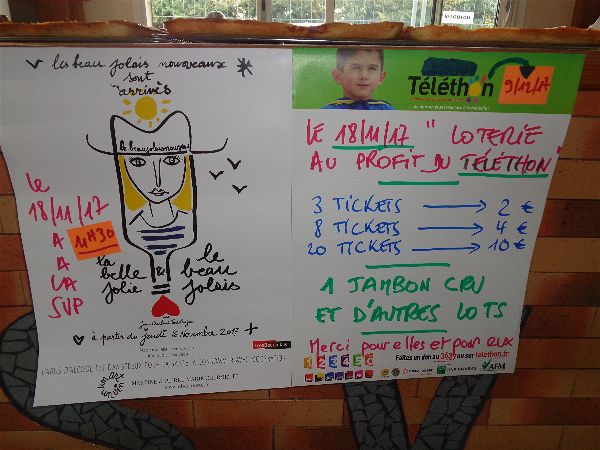 les beau jolais nouveaux
sont
arrivés
le beaujolais nouveau
LE
18/11/17
A
11H30
A
LA
SVP
la
belle
jolie
&
le
beau
jolais
à partir du jeudi 16 Novembre 2017
L'ABUS D'ALCOOL EST DANGEREUX POUR LA SANTÉ, À CONSOMMER AVEC MODÉRATION
Téléthon
9/12/17
LE 18/11/17 " LOTERIE
AU PROFIT DU TÉLÉTHON "
3 TICKETS → 2 €
8 TICKETS → 4 €
20 TICKETS → 10 €
1 JAMBON CRU
ET D'AUTRES LOTS
Merci pour elles et pour eux
Faites un don au 3637 ou sur telethon.fr
AFM